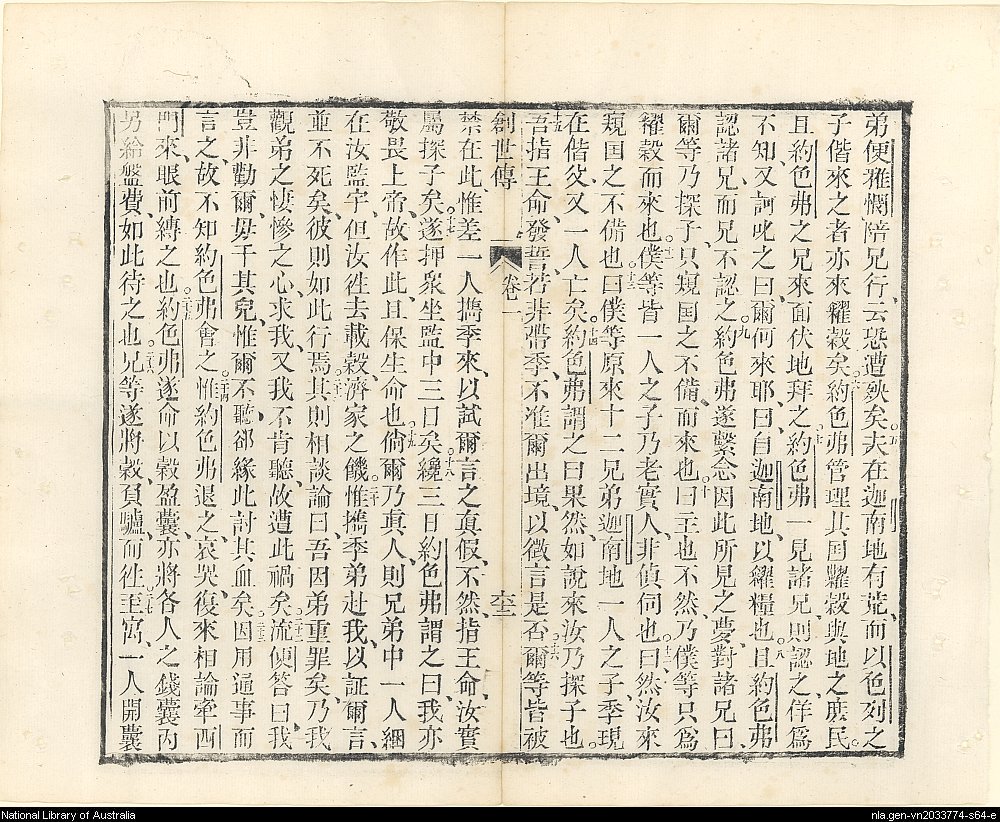 弟便雅憫陪兄行、云恐遭殃矣。五夫在迦南地有荒、而以色列之
子偕來之者亦來糴穀矣。六約色弗管理其国糶穀與地之庶民。
且約色弗之兄來面伏地拜之。七約色弗一見諸兄、則認之、佯爲
不知、又訶叱之曰、爾何來耶、曰、自迦南地、以糴糧也。八且約色弗
認諸兄、而兄不認之。九約色弗遂繫念因此所見之夢、對諸兄曰、
爾等乃探子、只窺国之不備而來也。十曰、主也不然、乃僕等只爲
糴穀而來也。十一僕等皆一人之子、乃老實人、非偵伺也。十二曰、然汝來
窺国之不備也。十三曰、僕等原來十二兄弟、迦南地一人之子、季現
在偕父、又一人亡矣。十四約色弗謂之曰、果然如說來、汝乃探子也。
十五吾指王命、發誓、若非帶季、不准爾出境、以徵言是否。十六爾等皆被
創世傳 卷一 六三
禁在此、惟差一人擕季來、以試爾言之眞假、不然、指王命、汝實
屬探子矣。十七遂押衆坐監中三日矣。十八纔三日、約色弗謂之曰、我亦
敬畏上帝、故作此、且保生命也。十九倘爾乃眞人、則兄弟中一人綑
在汝監宇、但汝徃去載穀、濟家之饑。二十惟擕季弟赴我、以証爾言、
並不死矣、彼則如此行焉。二十一其則相談論曰、吾因弟重罪矣、乃我
觀弟之悽慘之心、求我、又我不肯聽、故遭此禍矣。二十二流便答曰、我
豈非勸爾、毋干其兒、惟爾不聽、郤緣此討其血矣。二十三因用通事而
言之、故不知約色弗會之。二十四惟約色弗退之、哀哭、復來相論、牽西
門來、眼前縛之也。二十五約色弗遂命以穀盈囊、亦將各人之錢囊內
另給盤費、如此待之也。二十六兄等遂將穀、負驢、而徃。二十七至寓、一人開囊